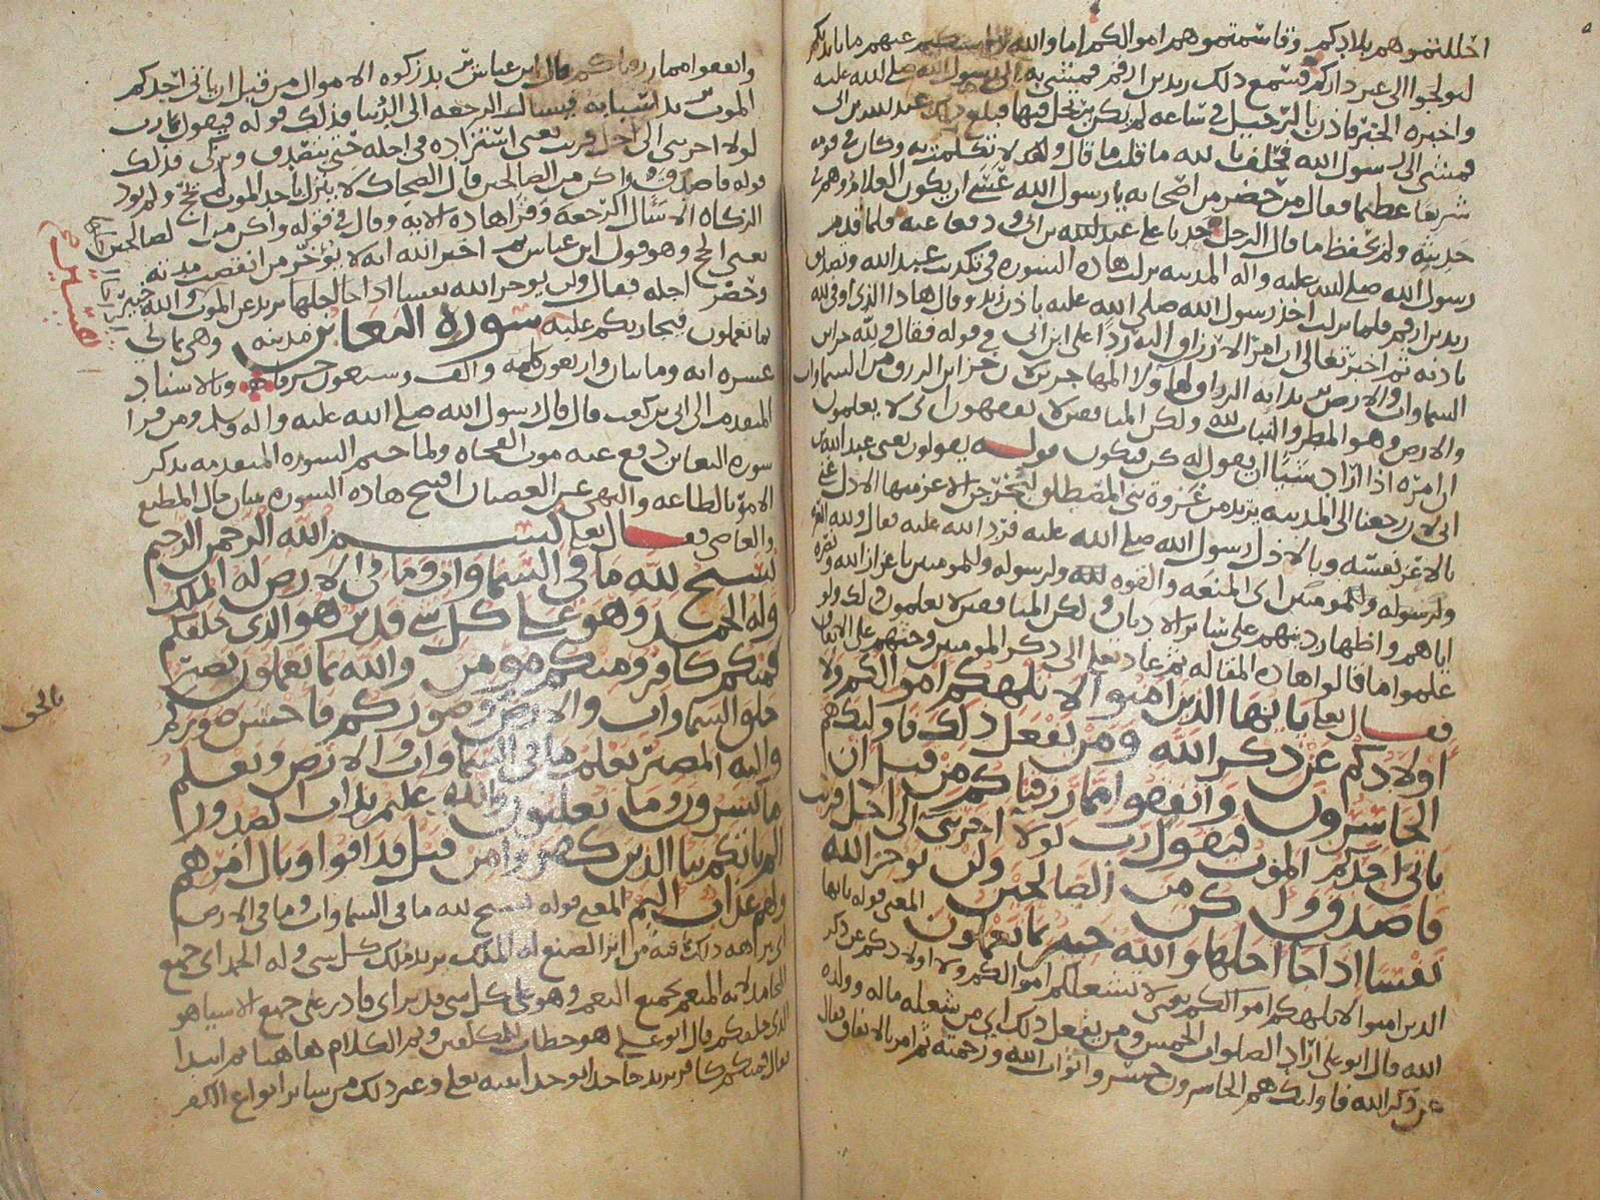 احللتموهم بلادكم وقاسمتموهم اموالكم اما والله لو عنهم ما بايديكم
لتحولوا الى غير داركم فسمع ذلك زيد بن ارقم فمشى به الى رسول الله صلى الله عليه
واخبره الخبر فاذن بالرحيل في ساعه لم يكن يرتحل فيها فبلغ ذلك عبد الله بن ابي
فمشى الى رسول الله فحلف بالله ما قلت ما قال ولا تكلمت به وكان في قومه
شريفا عظيما فقال من حضر من اصحابه يا رسول الله عسى ان يكون الغلام وهم في
حديثه ولم يحفظ ما قال الرجل حدبا على عبد الله بن ابي ودفعا عنه فلما قدم
رسول الله صلى الله عليه واله المدينه نزلت هاذه السوره في تكذيب عبد الله وتصديق
زيد بن ارقم فلما نزلت اخذ رسول الله صلى الله عليه باذن زيد وقال هاذا الذي اوفى لله
باذنه ثم اخبر تعالى ان امر الارزاق اليه ردا على ابن ابي في قوله فقال ولله خزاين
السماوات والارض يريد انه الرزاق لهاولا المهاجرين لان خزاين الرزق من السماوات
والارض وهو المطر والنبات لله ولكن المنافقين لا يفقهون اي لا يعلمون
ان امره اذا اراد شيئا ان يقول له كن فيكون قوله يقولون يعني عبد الله بن
ابي لان رجعنا الى المدينه يريد من غزوة بني المصطلق ليخرجن الاعز منها الاذل عنى
بالاعز نفسه وبالاذل رسول الله صلى الله عليه فرد الله عليه فقال ولله العزه
ولرسوله وللمومنين اي المنعه والقوه لله ولرسوله وللمومنين باعزاز الله ونصره
اياهم واظهار دينهم على ساير الاديان ولكن المنافقين لا يعلمون ذلك ولو
علموا ما قالوا هاذه المقاله ثم عاد تعالى الى ذكر المومنين وحثهم على الانفاق
فقال تعالى يا ايها الذين امنوا لا تلهكم اموالكم ولا
اولادكم عن ذكر الله ومن يفعل ذلك فاوليك هم
الخاسرون وانفقوا مما رزقناكم من قبل ان
ياتي احدكم الموت فيقول رب لولا اخرتني الى اجل قريب
فاصدق واكن من الصالحين ولن يوخر الله
نفسا اذا جا اجلها والله خبير بما تعملون المعنى قوله يا ايها
الذين امنوا لا تلهكم اموالكم يعني لا تشغلكم اموالكم ولا اولادكم عن ذكر
الله قال ابو علي اراد الصلوات الخمس ومن يفعل ذلك اي من شغله ماله وولده
عن ذكر الله فاوليك هم الخاسرون خسروا ثواب الله ورحمته ثم امر بالانفاق فقال
وانفقوا مما رزقناكم قال ابن عباس يريد زكوه الاموال من قبل ان ياتي احدكم
الموت يريد اسبابه فيسال الرجعه الى الدنيا فذلك قوله فيقول رب
لولا اخرتني الى اجل قريب يعني استزاده في اجله حتى يتصدق ويزكي فذلك
قوله فاصدق واكن من الصالحين قال الضحاك لا ينزل باحد الموت لم يحج ولم يود
الزكاه الا سال الرجعه وقرا هاذه الايه وقال في قوله واكن من الصالحين
يعني الحج وهو قول ابن عباس ثم اخبر الله انه لا يوخر من انقضت مدته
وحضر اجله فقال ولن يوخر الله نفسا اذا جا اجلها يريد عن الموت والله خبير
بما تعملون فيجازيكم عليه سورة التغابن مدنيه وهي ثماني
عشره ايه ومايتان واربعون كلمه والف وسبعون حرفا وبالاسناد
المتقدم الى ابي بن كعب قال قال رسول الله صلى الله عليه واله وسلم ومن قرا
سوره التغابن دفع عنه موت الفجاه ولما ختم السوره المتقدمه بذكر
الامر بالطاعه والنهي عن العصيان افتتح هاذه السوره ببيان حال المطيع
والعاصي فقال تعالى بسم الله الرحمن الرحيم
يسبح لله ما في السماوات وما في الارض له الملك
وله الحمد وهو على كل شي قدير هو الذي خلقكم
فمنكم كافر ومنكم مومن والله بما تعملون بصير
خلق السماوات والارض وصوركم فاحسن صوركم
بالحق
واليه المصير يعلم ما في السماوات والارض ويعلم
ما تسرون وما تعلنون والله عليم بذات الصدور
الم ياتكم نبا الذين كفروا من قبل فذاقوا وبال امرهم
ولهم عذاب اليم المعنى قوله يسبح لله ما في السماوات وما في الارض
اي ينزهه ذلك بما فيه من اثر الصنع له الملك يريد ملك كل شي وله الحمد اي جميع
المحامد لانه المنعم بجميع النعم وهو على كل شي قدير اي قادر على جميع الاشيا هو
الذي خلقكم قال ابو علي هو خطاب للمكلفين وتم الكلام هاهنا ثم ابتدا
فقال فمنكم كافر يريد جاحدا بوحدانيته تعالى وغير ذلك من ساير انواع الكفر